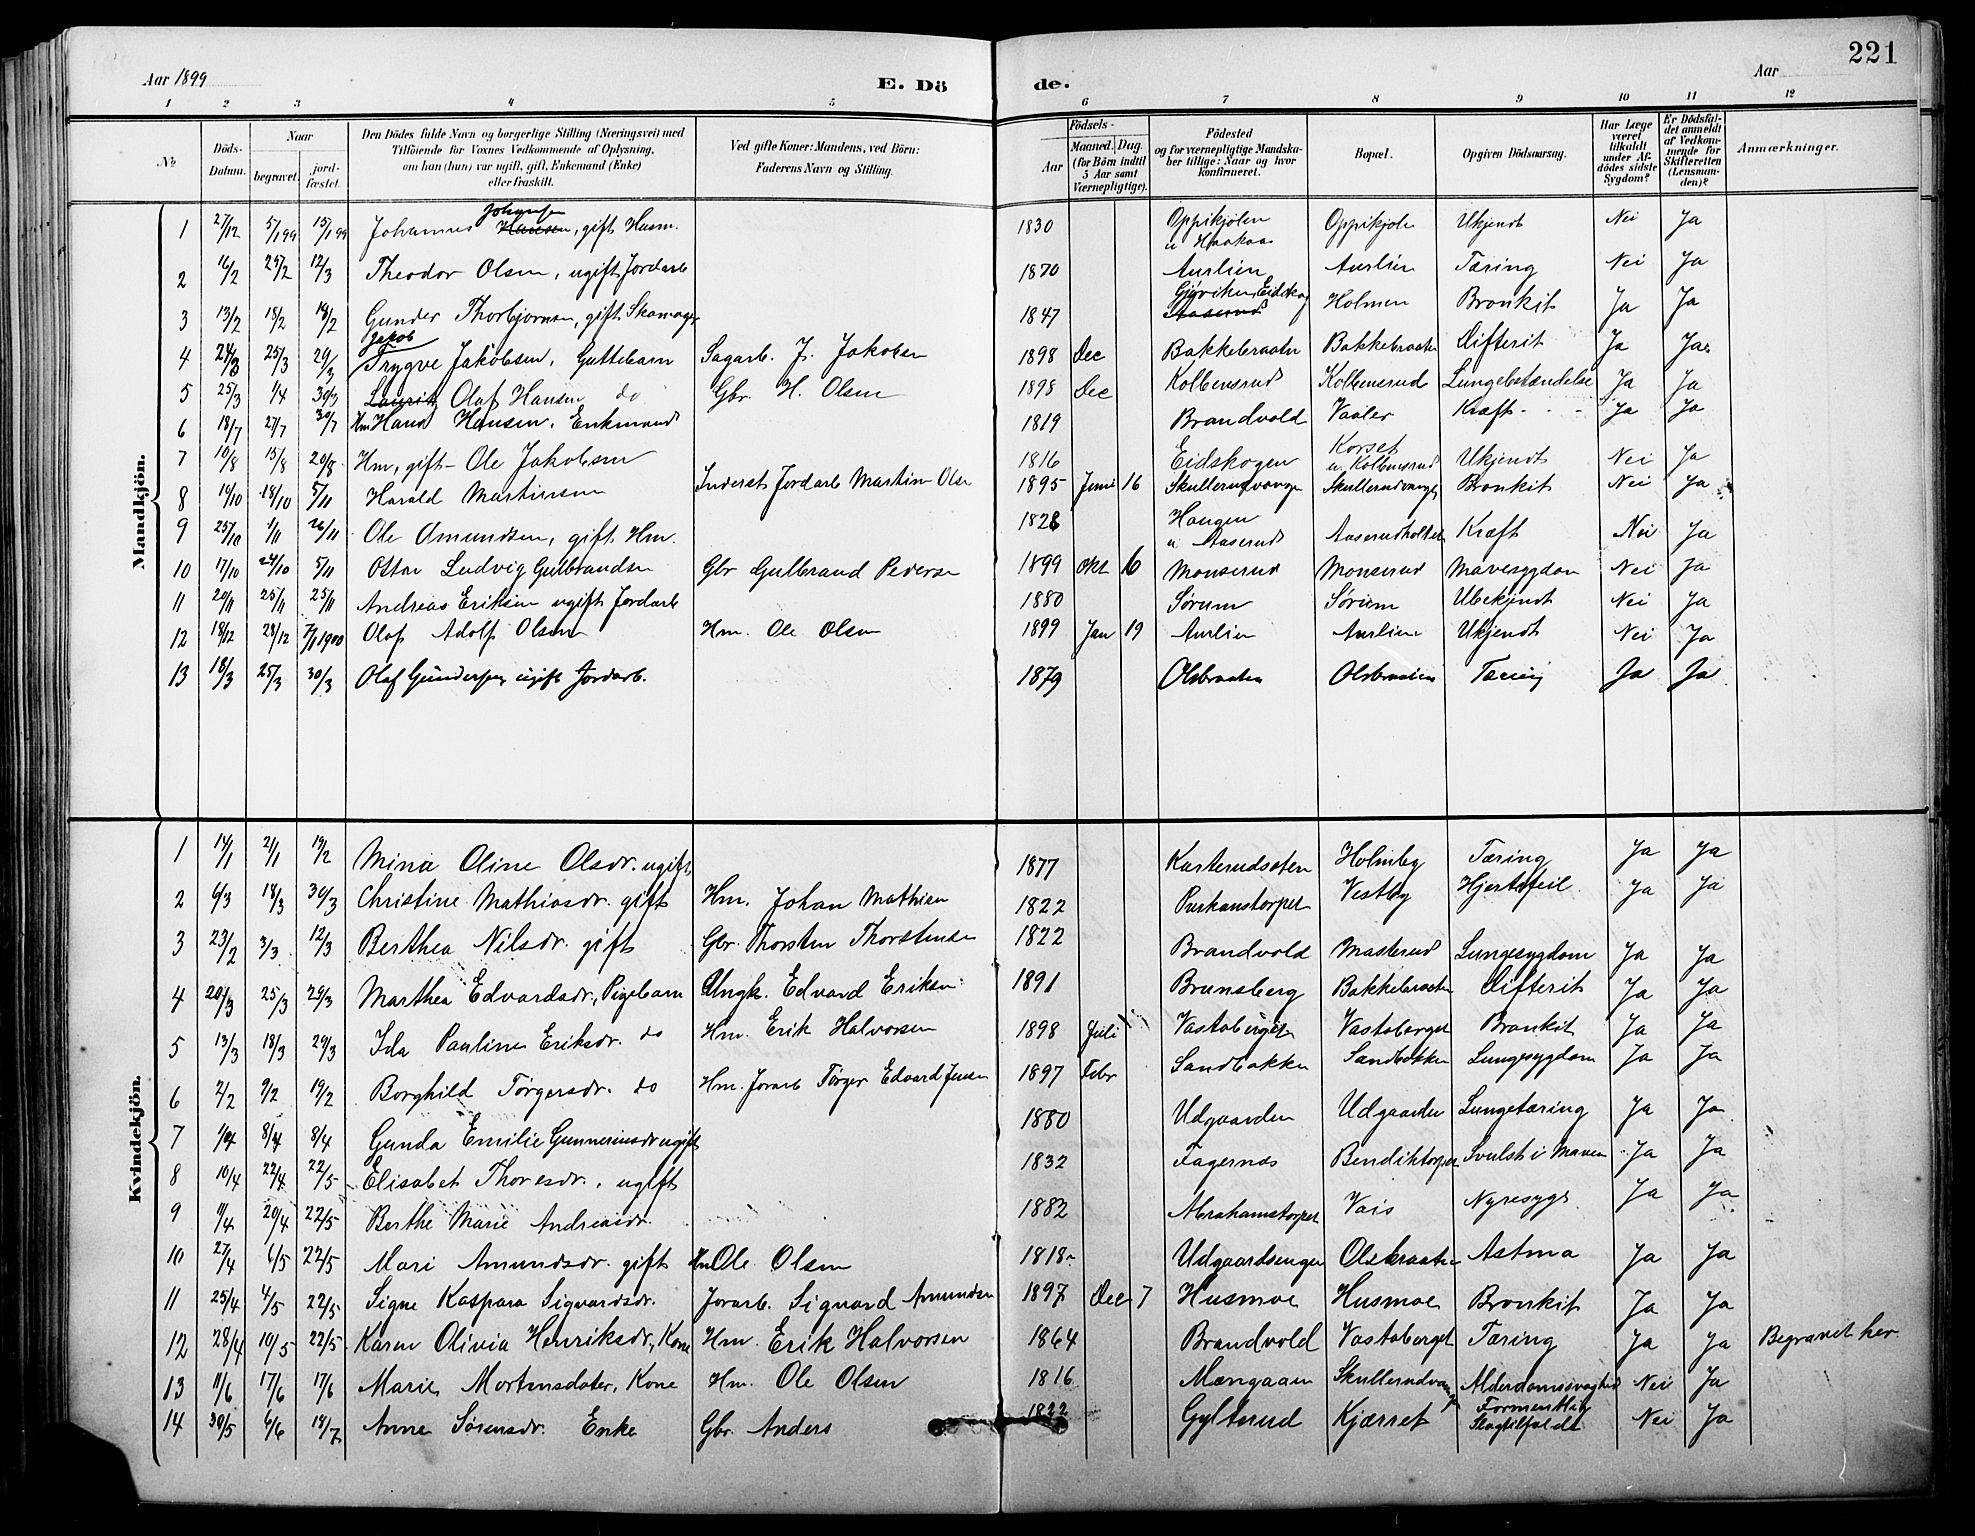 221
Aar 1899
E. Dö
de.
Aar
1 2 3 4 5 6 7 8 9 10 11 12
No
Döds-Datum.
Naar
begravet.
jord-fæstet.
Den Dödes fulde Navn og borgerlige Stilling (Næringsvei) med
Tilföiende for Voxnes Vedkommende af Oplysning,
om han (hun) var ugift, gift, Enkemand (Enke)
eller fraskilt.
Ved gifte Koner: Mandens, ved Börn:
Faderens Navn og Stilling.
Födsels-
Aar
Maaned. Dag.
(for Börn indtil
5 Aar samt
Værnepligtige).
Födested
og for værnepligtige Mandska-
ber tillige: Naar og hvor
konfirmeret.
Bopæl.
Opgiven Dödsaarsag.
Har Læge
været
tilkaldt
under Af-
dödes sidste
Sygdom?
Er Dödsfal-
det anmeldt
af Vedkom-
mende for
Skifteretten
(Lensman-
den)?
Anmærkninger.
Mandkjön.
1 27/12 5/1 99 15/1 99 Johannes Hansen Johansen, gift Husm. 1830 Oppikjölen u Haakaas Oppikjölen Ukjendt Nei Ja
2 16/2 25/2 12/3 Theodor Olsen, ugift Jordarb 1870 Aurlien Aurlien Tæring Nei Ja
3 13/2 18/2 19/2 Gunder Thorbjørnsen, gift Skomager 1847 Gjøviken Eidskog Aaserud Holmen Bronkit Ja Ja
4 21/3 25/3 29/3 Jakob Trygve Jakobsen, Guttebarn Sagarb. J. Jakobsen 1898 Dec Bakkebraaten Bakkebraaten Difterit Ja Ja
5 25/3 1/4 30/3 Lauritz Olaf Hansen do Gbr. H. Olsen 1898 Dec Kolbensrud Kolbensrud Lungebetændelse Ja Ja
6 18/7 27/7 30/7 Hm Hans Hansen, Enkmand 1819 Brandvold Vaaler Kræft - - - Ja Ja
7 10/8 15/8 20/8 Hm, gift - Ole Jakobsen 1816 Eidskogen Korset u. Kolbensrud Ukjendt Nei Ja
8 14/10 18/10 5/11 Harald Martinsen Inderst Jordarb Martin Olsen 1895 Juni 16 Skullerudvangen Skullerudvangen Bronkit Nei Ja
9 25/10 1/11 26/11 Ole Amundsen, gift Hm. 1828 Haugen u Aaserud Aaserudholtet Kræft Nei Ja
10 17/10 24/10 5/11 Ottar Ludvig Gulbrandsen Gbr Gulbrand Pedersen 1899 Okt 6 Monserud Monserud Mavesygdom Nei Ja
11 20/11 25/11 25/11 Andreas Eriksen ugift Jordarb 1880 Sörum Sörum Ubekjendt Nei Ja
12 18/12 28/12 7/1 1900 Olaf Adolf Olsen Hm. Ole Olsen 1899 Jan 19 Aurlien Aurlien Ukjendt Nei Ja
13 18/3 25/3 30/3 Olaf Gundersen ugift Jordarb. 1879 Olsbraaten Olsbraaten Tæring Ja Ja
Kvindekjön.
1 14/1 2/1 19/2 Mina Oline Olsdr. ugift 1877 Karterudsæten Holmby Tæring Ja Ja
2 9/3 18/3 30/3 Christine Mathiasdr. gift Hm. Johan Mathisen 1822 Purkanstorpet Vestby Hjertefeil Ja Ja
3 23/2 3/3 12/3 Berthea Nilsdr. gift Gbr. Thorsten Thorstensen 1822 Brandvold Masterud Lungesygdom Ja Ja
4 20/3 25/3 29/3 Marthea Edvardsdr., Pigebarn Ungk. Edvard Eriksen 1891 Brunsberg Bakkebraaten Difterit Ja Ja
5 13/3 18/3 29/3 Ida Pauline Eriksdr. do Hm. Erik Halvorsen 1898 Juli Vastaberget Vastaberget Bronkit Ja Ja
6 2/2 9/2 19/2 Borghild Törgersdr. do Hm. Jorarb Törger Edvard Jensen 1897 Febr Sandbakken Sandbakken Lungesygdom Ja Ja
7 1/4 8/4 8/4 Gunda Emilie Gunneriusdr ugift 1880 Udgaarden Udgaarden Lungetæring Ja Ja
8 10/4 22/4 22/5 Elisabet Thoresdr., ugift 1832 Fagernæs Bendiktorpet Svulst i Maven Ja Ja
9 11/4 20/4 22/5 Berthe Marie Andreasdr. 1882 Abrahamstorpet Vais Nyresygd Ja Ja
10 27/4 6/5 22/5 Mari Amundsdr. gift Hm Ole Olsen 1818 Udgaardsenger Olsbraaten Astma Ja Ja
11 25/4 4/5 22/5 Signe Kaspara Sigvardsdr. Jorarb. Sigvard Amundsen 1897 Dec 7 Husmoe Husmoe Bronkit Ja Ja
12 28/4 10/5 22/5 Karen Olivia Henriksdr., Kone Hm. Erik Halvorsen 1864 Brandvold Vastaberget Tæring Ja Ja Begravet her.
13 11/6 17/6 17/6 Marie Mortensdater, Kone Hm. Ole Olsen 1816 Mangaan Skullerudvangen Alderdomssvaghed Nei Ja
14 30/5 6/6 19/7 Anne Sörensdr. Enke Gbr. Anders 1822 Gylterud Kjærret Formentlig Slagtilfælde Nei Ja